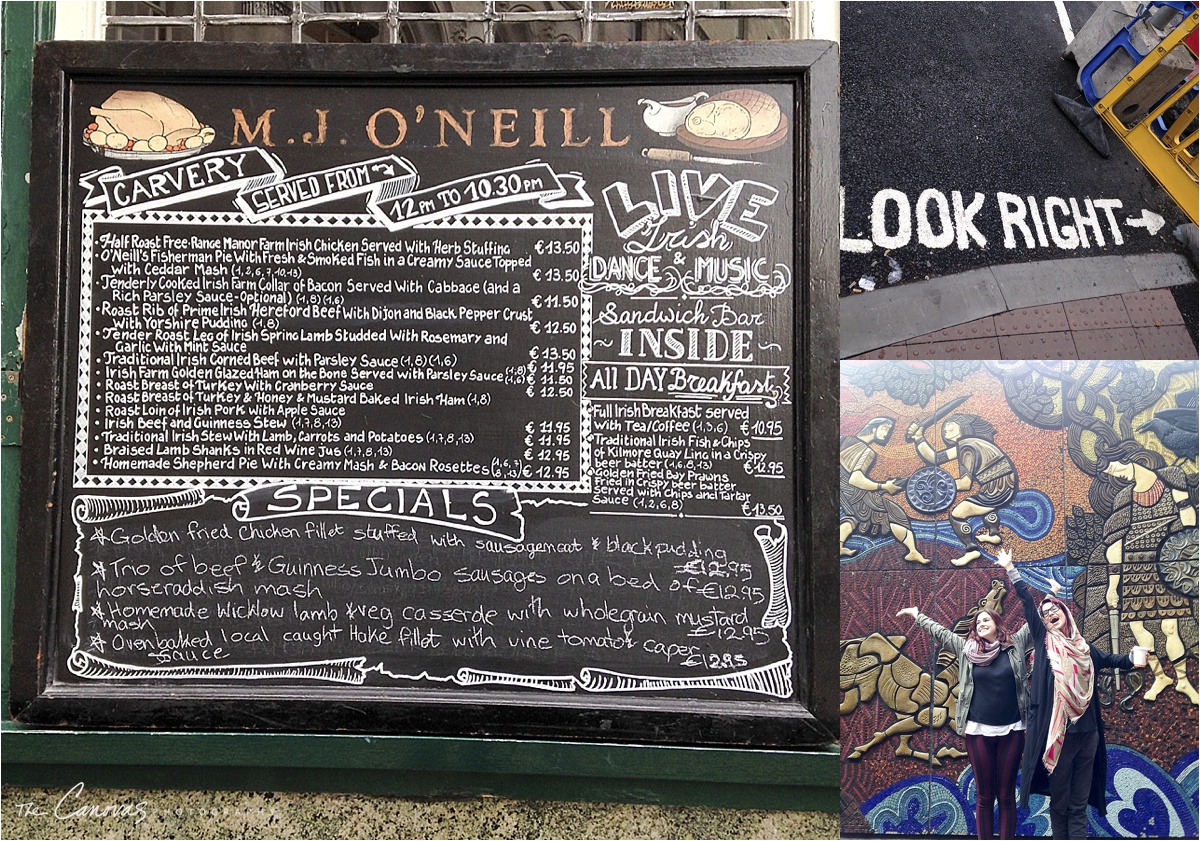 M.J. O'NEILL
CARVERY
SERVED FROM
12PM TO 10.30PM
• Half Roast Free-Range Manor Farm Irish Chicken Served With Herb Stuffing € 13.50
• O'Neil's Fisherman Pie With Fresh & Smoked Fish in a Creamy Sauce Topped
with Ceddar Mash (1,2,6,7,10,13) € 13.50
• Tenderly Cooked Irish Farm Collar of Bacon Served With Cabbage (and a
Rich Parsley Sauce-Optional) (1,8)(1,6) € 11.50
• Roast Rib of Prime Irish Hereford Beef With Dijon and Black Pepper Crust
With Yorshire Pudding (1,8) € 12.50
• Tender Roast Leg of Irish Spring Lamb Studded With Rosemary and
Garlic With Mint Sauce € 13.50
• Traditional Irish Corned Beef with Parsley Sauce (1,8)(1,6) € 11.95
• Irish Farm Golden Glazed Ham on the Bone Served with Parsley Sauce (1,8)(1,6) € 11.50
• Roast Breast of Turkey With Cranberry Sauce € 12.50
• Roast Breast of Turkey & Honey & Mustard Baked Irish Ham (1,8)
• Roast Loin of Irish Pork with Apple Sauce
• Irish Beef and Guinness Stew (1,7,8,13) € 11.95
• Traditional Irish Stew With Lamb, Carrots and Potatoes (1,7,8,13) € 11.95
• Braised Lamb Shanks in Red Wine Jus (1,7,8,13) € 12.95
• Homemade Shepherd Pie With Creamy Mash & Bacon Rosettes (1,6,7,8,13) € 12.95
LIVE
Irish
DANCE & MUSIC
Sandwich Bar
~ INSIDE ~
All DAY Breakfast
Full Irish Breakfast served
With Tea/Coffee (1,3,6) € 10.95
Traditional Irish Fish & Chips
of Kilmore Quay Ling in a Crispy
beer batter (1,6,8,13) € 12.95
Golden Fried Bay Prawns
Fried in Crispy beer batter
Served with Chips and Tartar
Sauce (1,2,6,8) € 13.50
SPECIALS
* Golden fried Chicken fillet stuffed with sausagemeat & blackpudding
€12.95
* Trio of beef & Guinness Jumbo sausages on a bed of €12.95
horseraddish mash
* Homemade Wicklow lamb & veg casserole with wholegrain mustard
mash €12.95
* Oven baked local caught Hake fillet with vine tomato & caper
sauce €12.95
LOOK RIGHT→
The Canovas
PHOTOGRAPHY